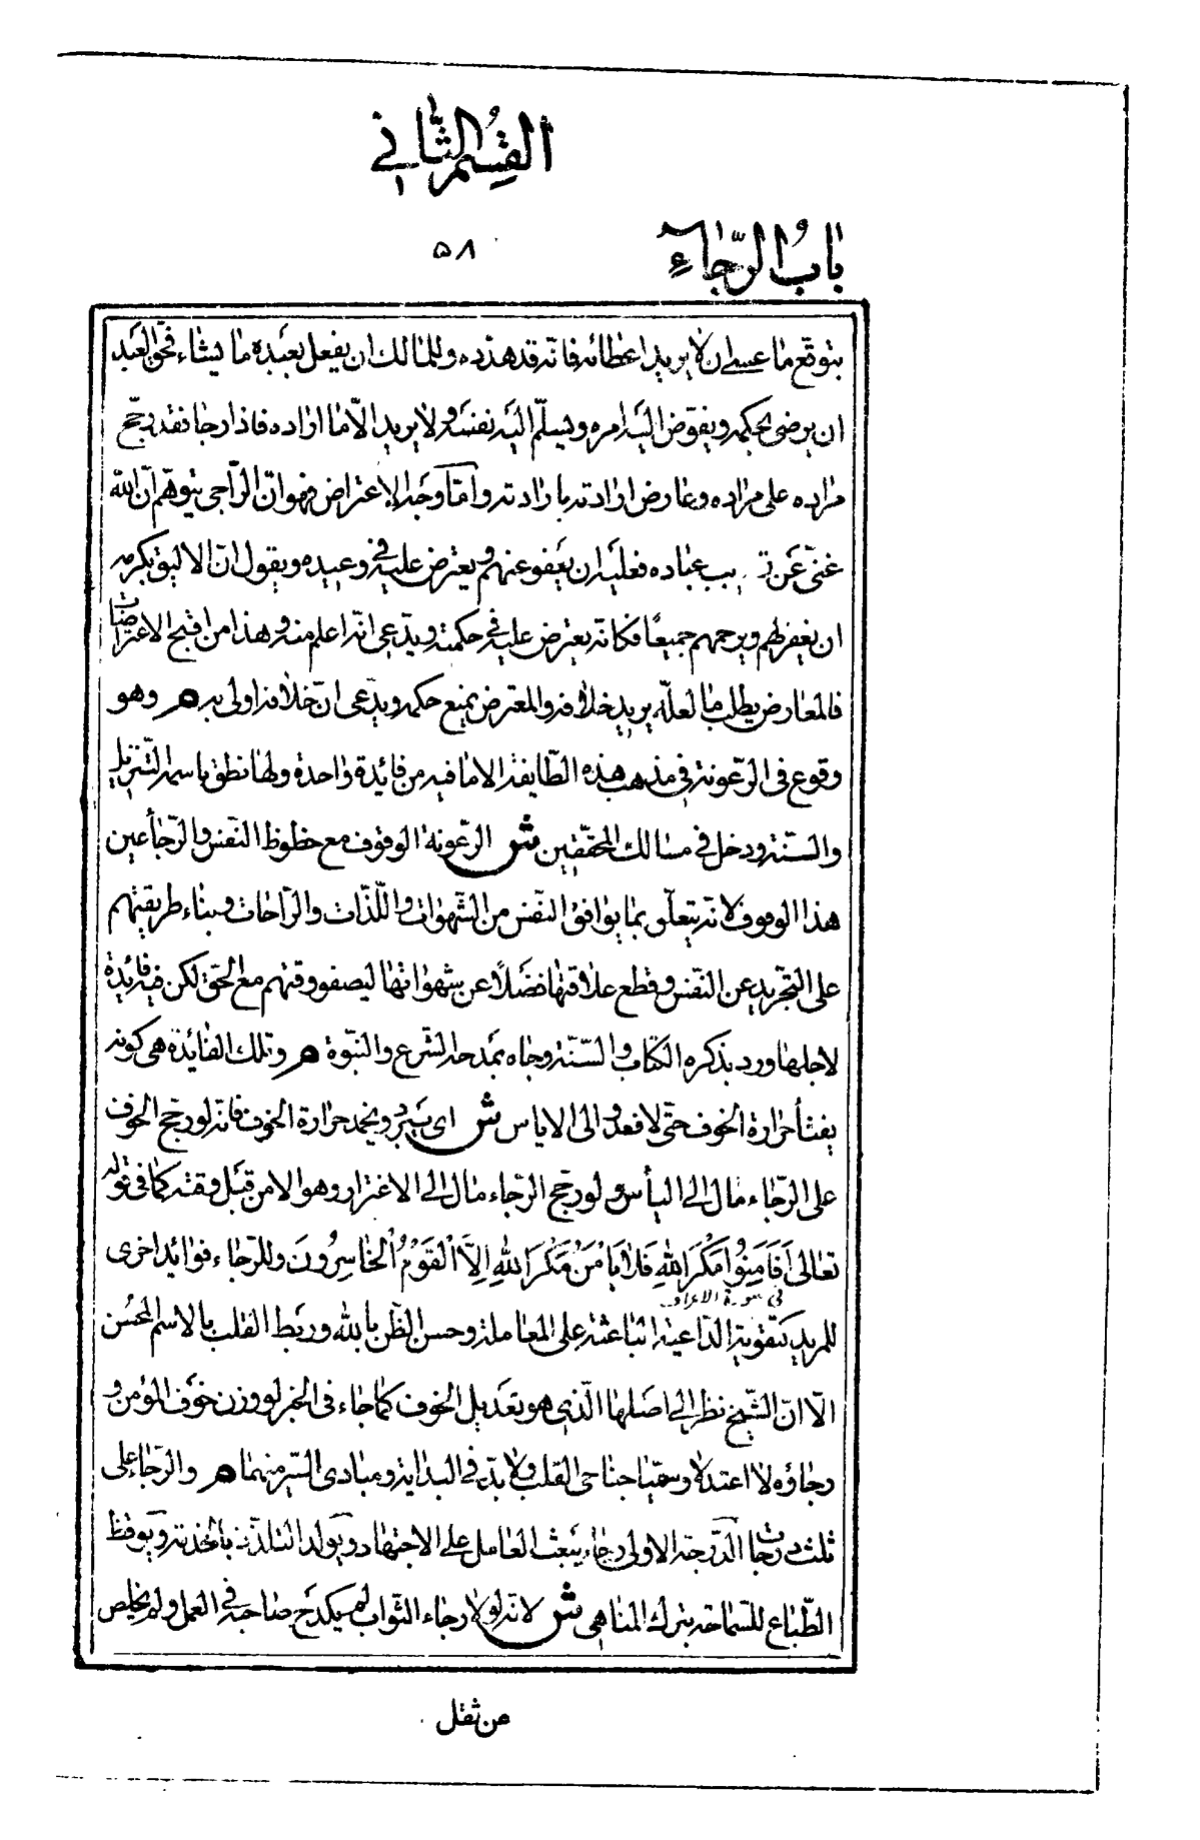 القسم الثاني
باب الرجاء
۵۸
يتوقع ما عسى ان لا يريد اعطائه فانه قد هدده وللمالك ان يفعل بعبده ما يشاء فحق العبد
ان يرضى بحكمه ويفوّض اليه امره ويسلّم اليه نفسه ولا يريد الّا ما اراده فاذا رجا فقد رجّح
مراده على مراده وعارض ارادته بارادته وامّا وجه الاعتراض فهو انّ الرّاجى يتوهّم انّ الله
غنىّ عن عباده فعليه ان يعفو عنهم ويعترض عليه في وعيده ويقول انّ الاليق بكرمه
ان يغفر لهم ويرحمهم جميعًا فكانّه يعترض عليه في حكمته ويدّعى انّه اعلم منه وهذا من اقبح الاعتراضات
فالمعارض يطلب ما لعلّه يريد خلافه والمعترض يمنع حكمه ويدّعى انّ خلافه اولى به م وهو
وقوع فى الرّعونة في مذهب هذه الطّايفة الا ما فيه من فائدة واحدة ولها نطق باسمه التّنزيل
والسّنّة ودخل في مسالك المحقّقين ش الرّعونة الوقوف مع حظوظ النّفس والرّجا عين
هذا الوقوف لانّه يتعلّق بما يوافق النّفس من الشّهوات واللّذّات والرّاحات وبناء طريقتهم
على التّجريد عن النّفس وقطع علاقتها فضلًا عن شهواتها ليصفو وقتهم مع الحقّ لكن فيه فايدة
لاجلها ورد بذكره الكتاب والسّنّة وجاء بمدحه الشرع والنبّوة م وتلك الفائدة هى كونه
يفثأ حرارة الخوف حتّى لا فعدوا الى الاياس ش اى يبرد ويخمد حرارة الخوف فانّه لو رجح الخوف
على الرّجاء مال الى اليأس ولو رجح الرّجاء مال الى الاغترار وهو الامن قبل وقته كما فى قوله
تعالى اَفَاَمِنُوا مَكْرَ اللهِ فَلا يَاْمَنُ مَكْرَ اللهِ اِلاَّ الْقَوْمُ الْخاسِرُونَ وللرّجاء فوائد اخرى
في سورة الاعراف
للمريد كتقوية الدّاعية الباعثة على المعاملة وحسن الظّن بالله وربط القلب بالاسم المحسن
الّا انّ الشّيخ نظر الى اصلها الّذى هو تعديل الخوف كما جاء فى الخبر لو وزن خوف المؤمن و
رجاؤه لاعتدلا وسمّيا جناحى القلب ولا بدّ في البداية ومبادى السّير منهما م والرّجاء على
ثلث درجات الدّرجة الاولى رجاء يبعث العامل على الاجتهاد ويولد التلذّذ بالخدمة ويوقظ
الطّباع للسّماحة بترك المناهى ش لانّه لولا رجاء الثّواب لم يكدح صاحبه في العمل ولم يخلص
من ثقل